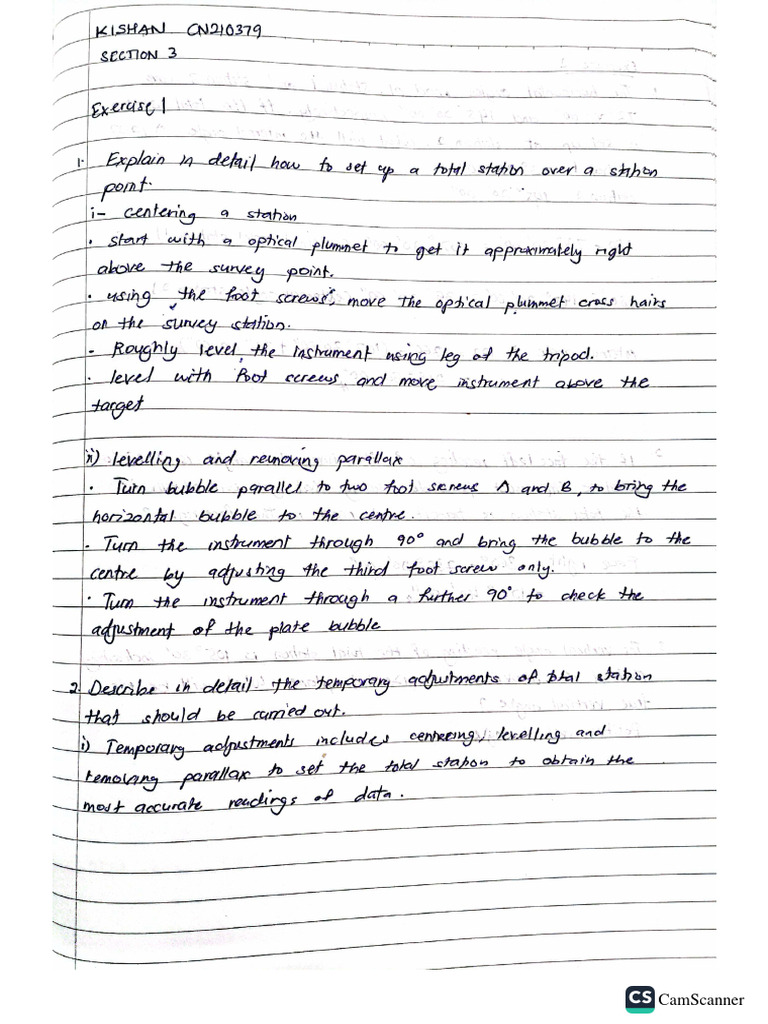 KISHAN CN210379
SECTION 3
Exercise 1
1. Explain in detail how to set up a total station over a station
point.
i- centering a station
• start with a optical plummet to get it approximately right
above the survey point.
• using the foot screws, move the optical plummet cross hairs
on the survey station.
- Roughly level the instrument using leg of the tripod.
• level with foot screws and move instrument above the
target
ii) levelling and removing parallax
• Turn bubble parallel to two foot screws A and B, to bring the
horizontal bubble to the centre.
• Turn the instrument through 90° and bring the bubble to the
centre by adjusting the third foot screw only.
• Turn the instrument through a further 90° to check the
adjustment of the plate bubble
2. Describe in detail the temporary adjustments of total station
that should be carried out.
i) Temporary adjustments includes centreing, levelling and
removing parallax to set the total station to obtain the
most accurate readings of data.
CS CamScanner